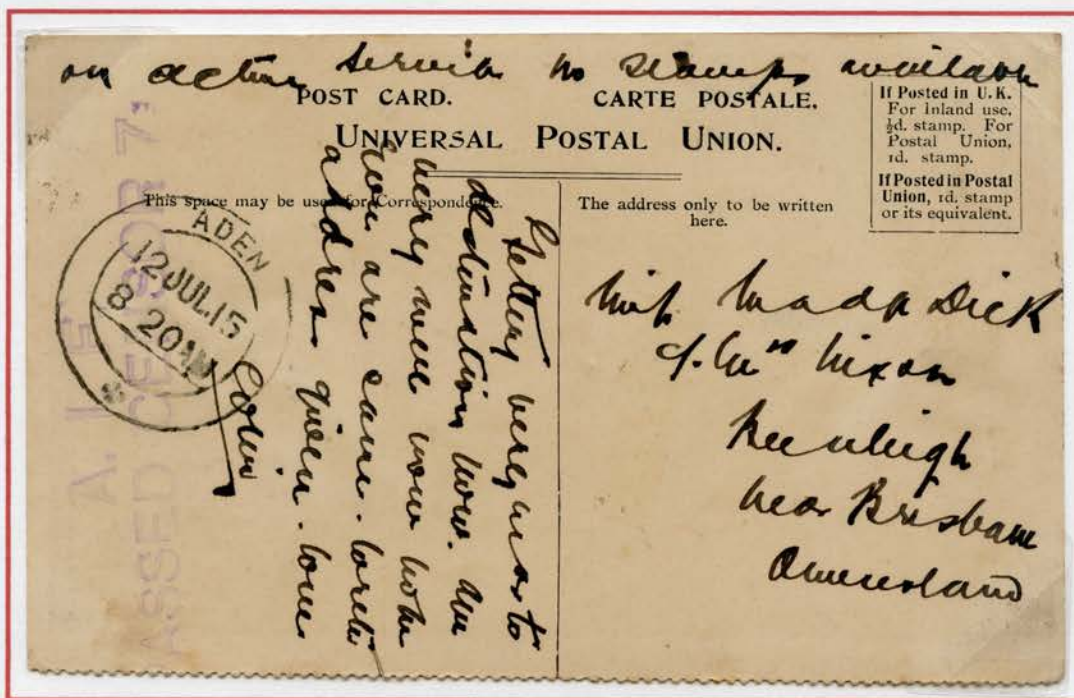 on active service no stamps available
POST CARD. CARTE POSTALE.
UNIVERSAL POSTAL UNION.
If Posted in U.K.
For Inland use,
½d. stamp. For
Postal Union,
1d. stamp.
If Posted in Postal
Union, 1d. stamp
or its equivalent.
This space may be used for Correspondence.
The address only to be written
here.
Getting very near to
destination now. Am
very well now hope
you are same. Write
address given. Love
Colin
Miss Dick
c/- Mrs Nixon
Beenleigh
near Brisbane
Queensland
ADEN
12 JUL.15
8 20AM
A. I. F.
PASSED CENSOR 7.